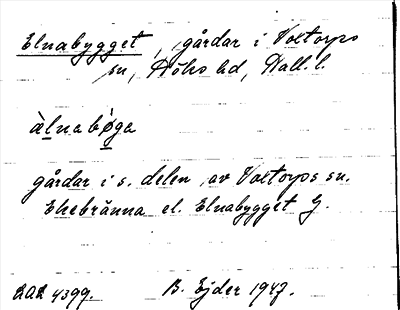 Elnabygget, gårdar i Voxtorps
sn, Höks hd, Hall. l.
àlnabø̀ga
gårdar i s. delen av Voxtorps sn.
Ekebränna el. Elnabygget G.
4399. B. Ejder 1947.